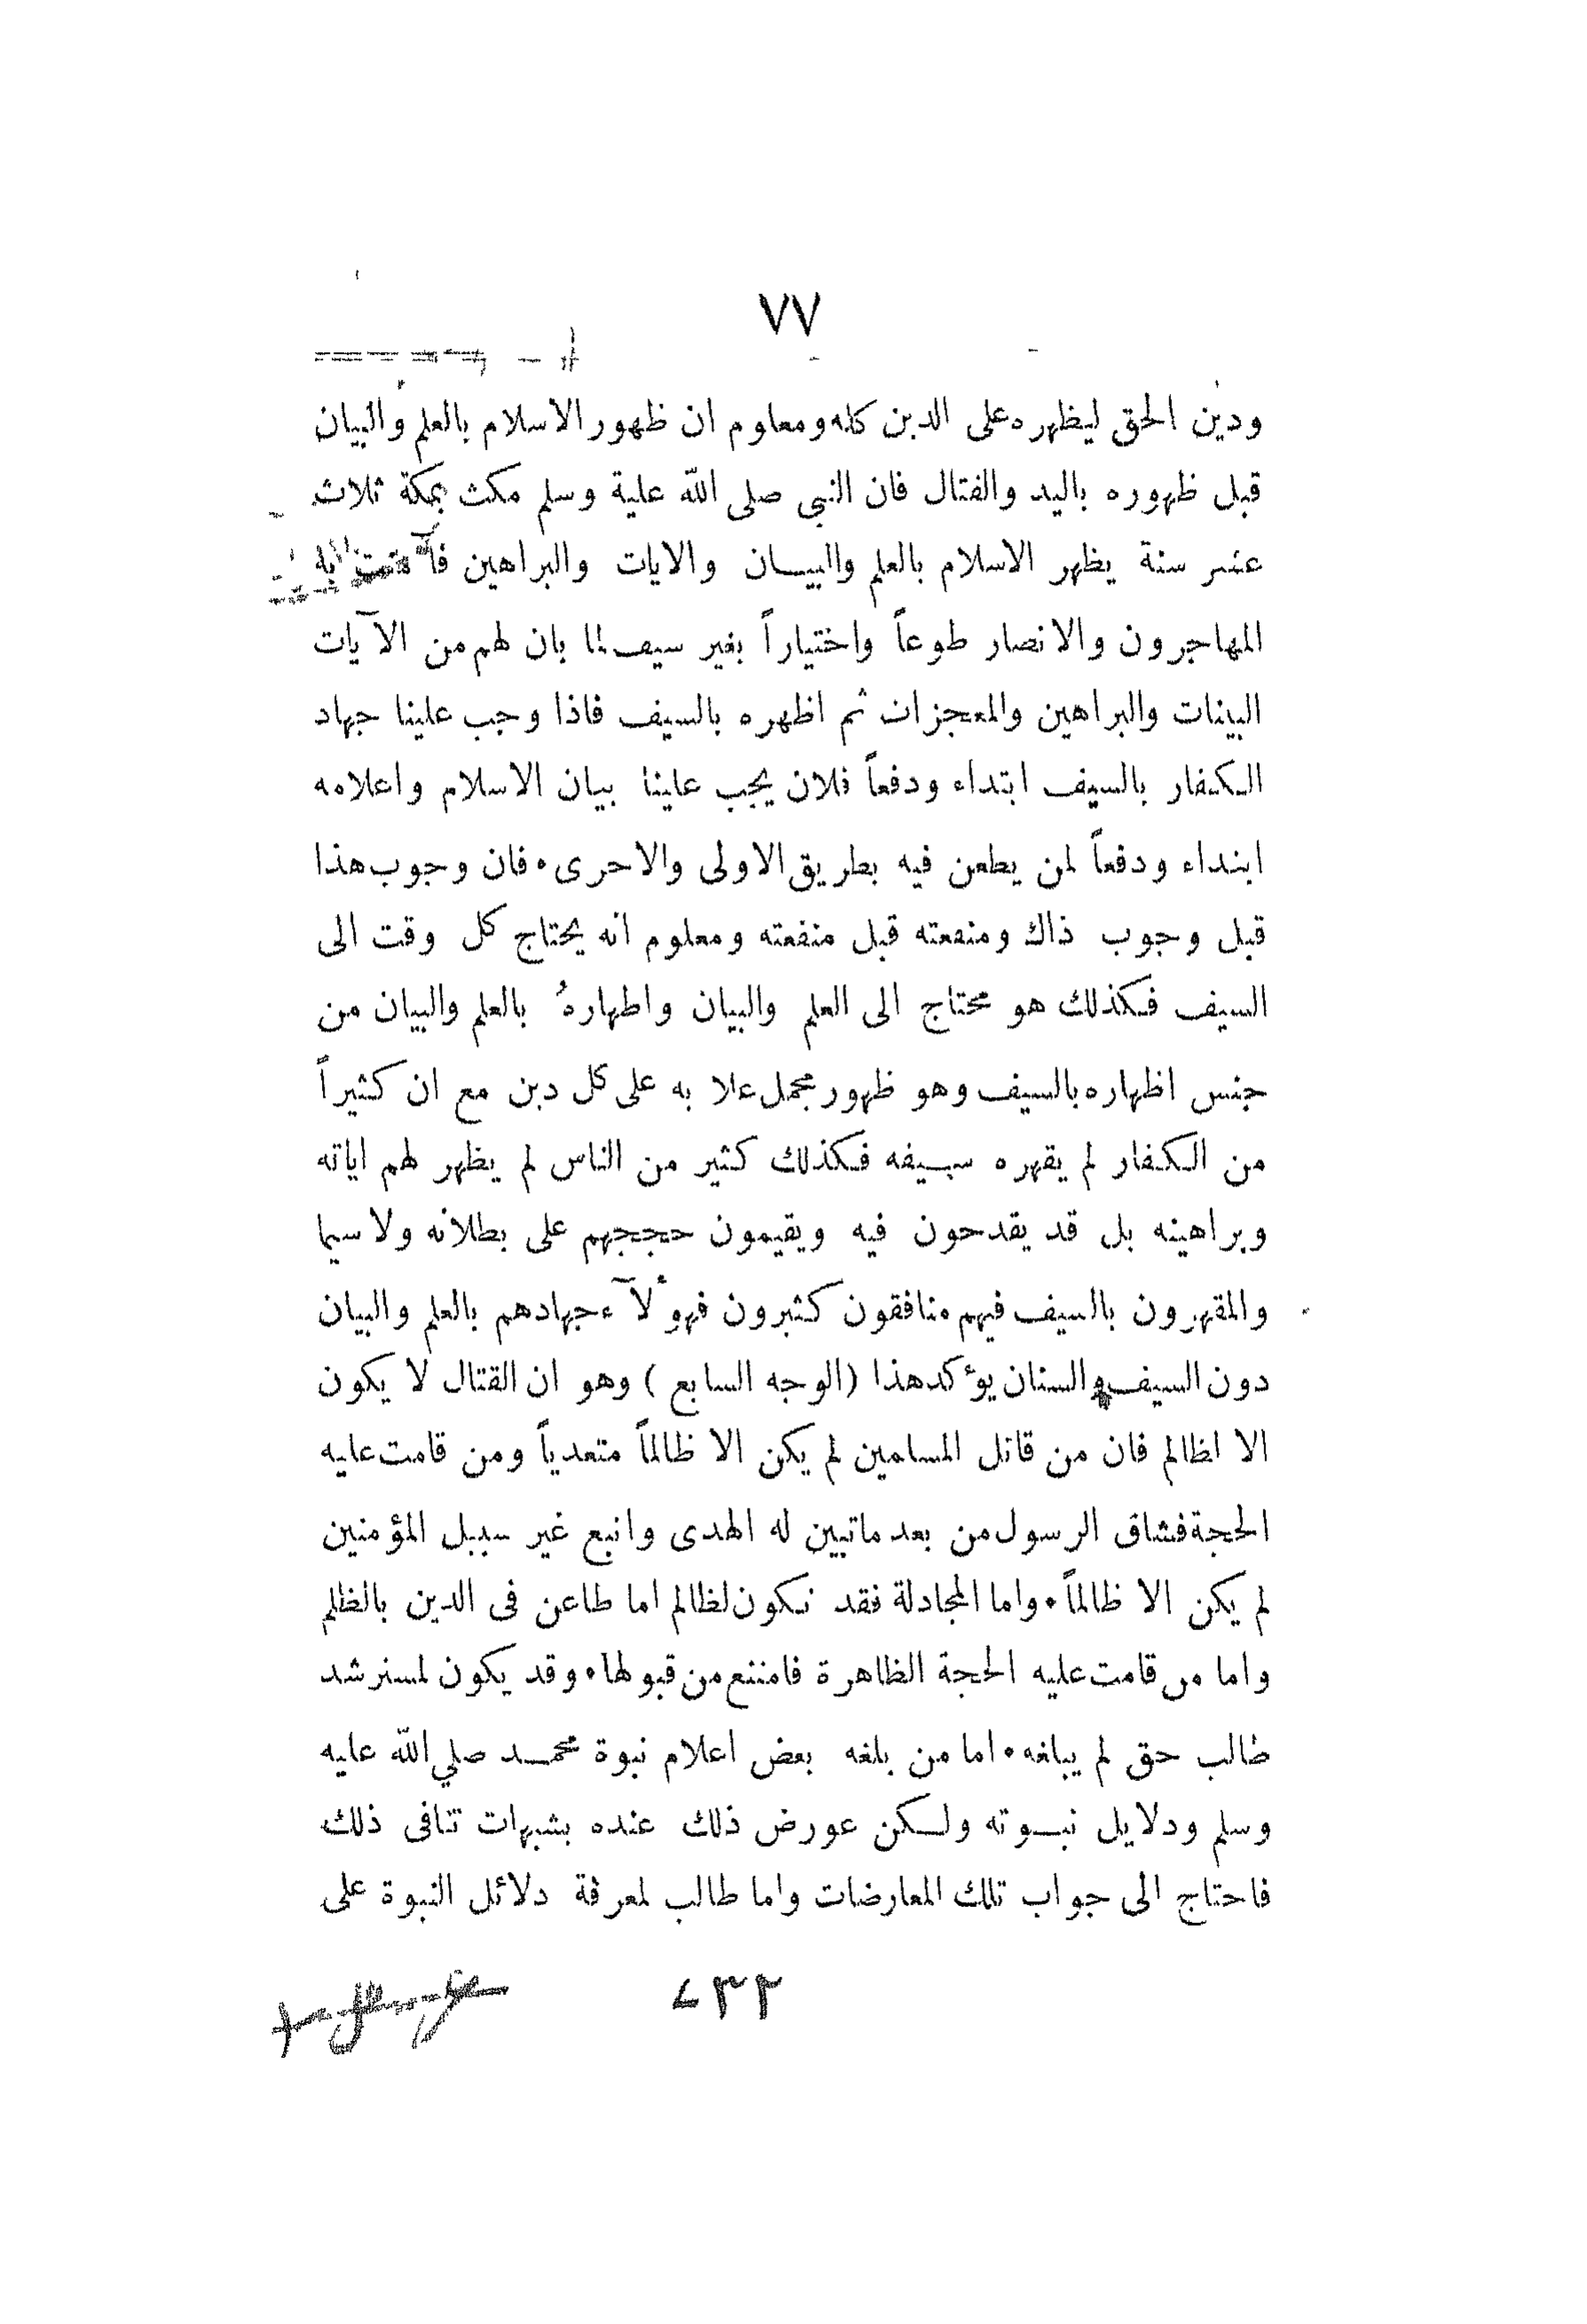 ٧٧
ودين الحق ليظهره على الدين كله ومعلوم ان ظهور الاسلام بالعلم والبيان
قبل ظهوره باليد والقتال فان النبى صلى الله علية وسلم مكث بمكة ثلاث
عشر سنة يظهر الاسلام بالعلم والبيان والايات والبراهين فآمنت به
المهاجرون والانصار طوعاً واختياراً بغير سيف لما بان لهم من الآيات
البينات والبراهين والمعجزات ثم اظهره بالسيف فاذا وجب علينا جهاد
الكفار بالسيف ابتداء ودفعاً فلان يجب علينا بيان الاسلام واعلامه
ابتداء ودفعاً لمن يطعن فيه بطريق الاولى والاحرى. فان وجوب هذا
قبل وجوب ذاك ومنفعته قبل منفعته ومعلوم انه يحتاج كل وقت الى
السيف فكذلك هو محتاج الى العلم والبيان واظهارهُ بالعلم والبيان من
جنس اظهاره بالسيف وهو ظهور مجمل علا به على كل دين مع ان كثيراً
من الكفار لم يقهره سيفه فكذلك كثير من الناس لم يظهر لهم اياته
وبراهينه بل قد يقدحون فيه ويقيمون حججهم على بطلانه ولا سيما
والمقهرون بالسيف فيهم منافقون كثيرون فهوٴلآء جهادهم بالعلم والبيان
دون السيف والسنان يوٴكد هذا (الوجه السابع) وهو ان القتال لا يكون
الا لظالم فان من قاتل المسلمين لم يكن الا ظالماً متعدياً ومن قامت عليه
الحجة فشاق الرسول من بعد ماتبين له الهدى واتبع غير سبيل المؤمنين
لم يكن الا ظالماً. واما المجادلة فقد تكون لظالم اما طاعن فى الدين بالظلم
واما من قامت عليه الحجة الظاهرة فامتنع من قبولها. وقد يكون لمسترشد
طالب حق لم يبلغه. اما من بلغه بعض اعلام نبوة محمد صلي الله عليه
وسلم ودلايل نبوته ولكن عورض ذلك عنده بشبهات تنافى ذلك
فاحتاج الى جواب تلك المعارضات واما طالب لمعرفة دلائل النبوة على